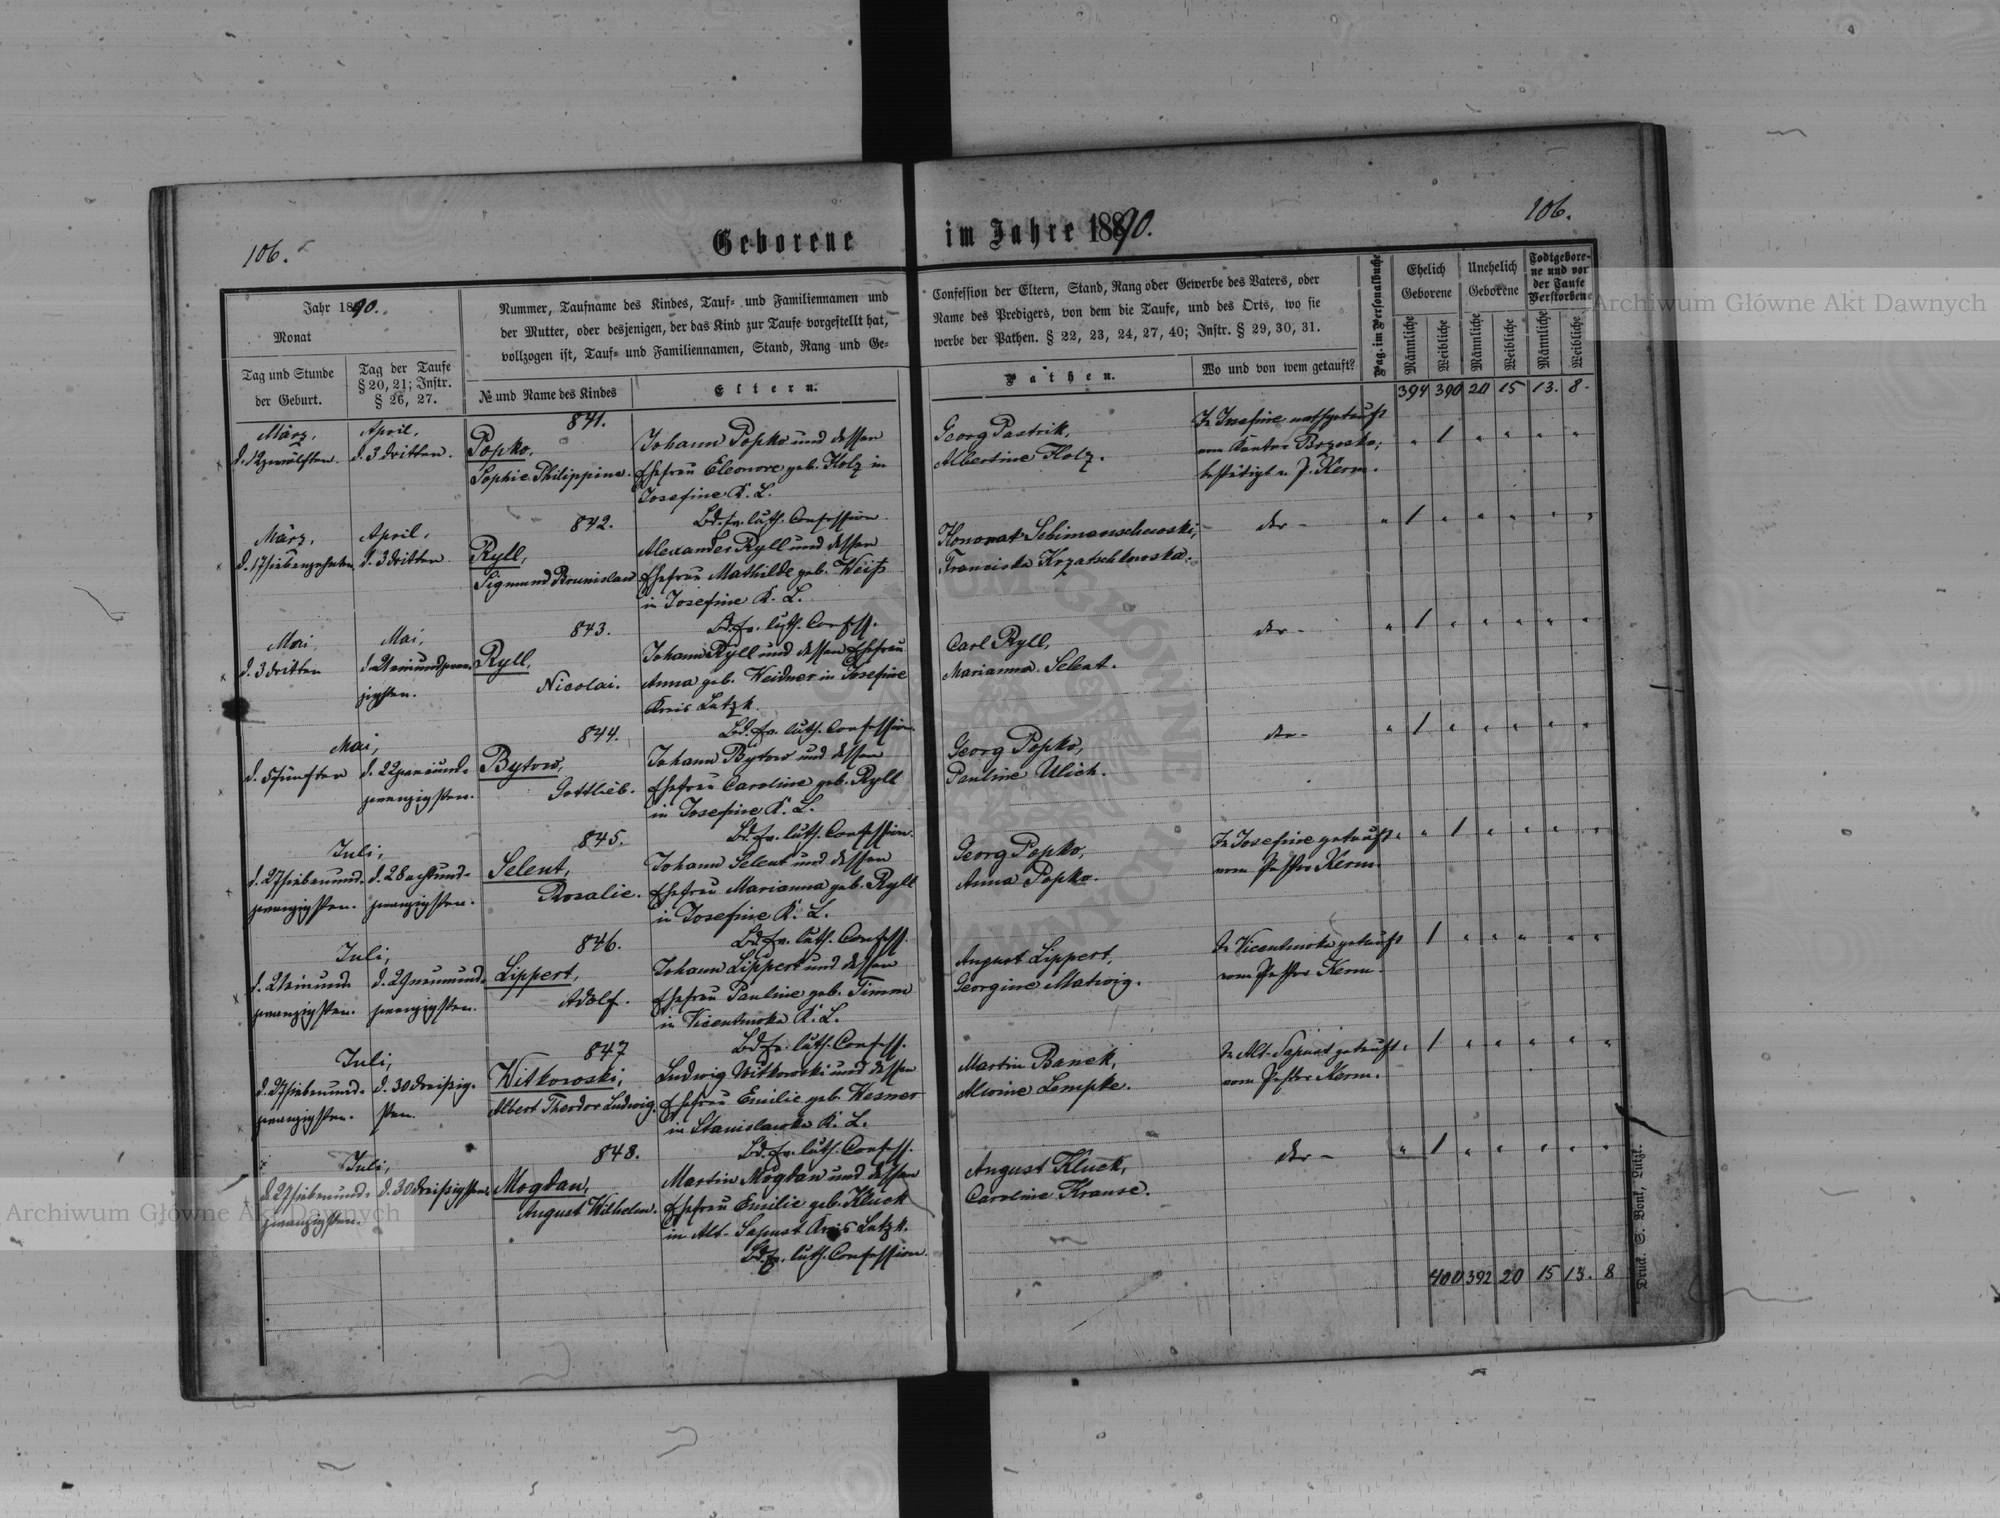 106.
Geborene
im Jahre 1890.
106.
Jahr 1890.
Monat
Tag und Stunde
der Geburt.
Tag der Taufe
§ 20, 21; Instr.
§ 26, 27.
Nummer, Taufname des Kindes, Tauf- und Familiennamen und
der Mutter, oder desjenigen, der das Kind zur Taufe vorgestellt hat,
vollzogen ist, Tauf- und Familiennamen, Stand, Rang und Ge-
№ und Name des Kindes
Eltern.
Confession der Eltern, Stand, Rang oder Gewerbe des Vaters, oder
Name des Predigers, von dem die Taufe, und des Orts, wo sie
werbe der Pathen. § 22, 23, 24, 27, 40; Instr. § 29, 30, 31.
Pathen.
Wo und von wem getauft?
Pag. im Personalbuche
Ehelich
Geborene
Unehelich
Geborene
Todtgebore-
ne und vor
der Taufe
Verstorbene
Männliche
Weibliche
Männliche
Weibliche
Männliche
Weibliche
394 390 20 15 13. 8
841.
März,
d. 12 zwölften.
April,
d. 3 dritten.
Popko,
Sophie Philippine.
Johann Popko und dessen
Ehefrau Eleonore geb. Holz in
Josefine K. L.
Bd. ev. luth. Confession
Georg Pastrik,
Albertine Holz.
In Josefine nothgetauft
vom Kantor
bestätigt v. P. Kerm.
842.
März,
d. 17 siebenzehnten
April,
d. 3 dritten
Ryll,
Sigmund Bronislaw
Alexander Ryll und dessen
Ehefrau Mathilde geb. Weiß
in Josefine K. L.
Bd. ev. luth. Confess.
Honorat
Franciska
der -
843.
Mai,
d. 3 dritten
Mai,
d. 21 einundzwan-
zigsten.
Ryll,
Nicolai.
Johann Ryll und dessen Ehefrau
Anna geb. Weidner in Josefine
Kreis Lutzk.
Bd. ev. luth. Confession
Carl Ryll,
Marianna Selent.
der -
844.
Mai,
d. 5 fünften
d. 22 zweiund-
zwanzigsten.
Bytow,
Gottlieb.
Johann Bytow und dessen
Ehefrau Caroline geb. Ryll
in Josefine K. L.
Bd. ev. luth. Confession.
Georg Popko,
Pauline Ulich.
der -
845.
Juli,
d. 27 siebenund-
zwanzigsten.
d. 28 achtund-
zwanzigsten.
Selent,
Rosalie.
Johann Selent und dessen
Ehefrau Marianna geb. Ryll
in Josefine K. L.
Bd. ev. luth. Confess.
Georg Popko,
Anna Popko.
In Josefine getauft
vom Pastor Kerm.
846.
Juli,
d. 21 einund
zwanzigsten.
d. 29 neunund-
zwanzigsten.
Lippert,
Adolf.
Johann Lippert und dessen
Ehefrau Pauline geb. Timm
in Vicentowka K. L.
Bd. ev. luth. Confess.
August Lippert,
Georgine Matwig.
In Vicentowka getauft
vom Pastor Kerm.
847
Juli,
d. 27 siebenund-
zwanzigsten.
d. 30 dreißig-
sten.
Witkowski,
Albert Theodor Ludwig.
Ludwig Witkowski und dessen
Ehefrau Emilie geb. Wesner
in Stanislawka K. L.
Bd. ev. luth. Confess.
Martin Banek,
Alwine Lempke.
In Alt-Sapust getauft
vom Pastor Kerm.
848.
Juli,
d. 27 siebenund-
zwanzigsten.
d. 30 dreißigsten
Mogdan,
August Wilhelm.
Martin Mogdan und dessen
Ehefrau Emilie geb. Kluck
in Alt-Sapust Kreis Lutzk.
Bd. ev. luth. Confession.
August Kluck,
Caroline Krause.
der -
400 392 20 15 13. 8
Druck. S. Bonk, Lutzk.
Archiwum Główne Akt Dawnych
Archiwum Główne Akt Dawnych